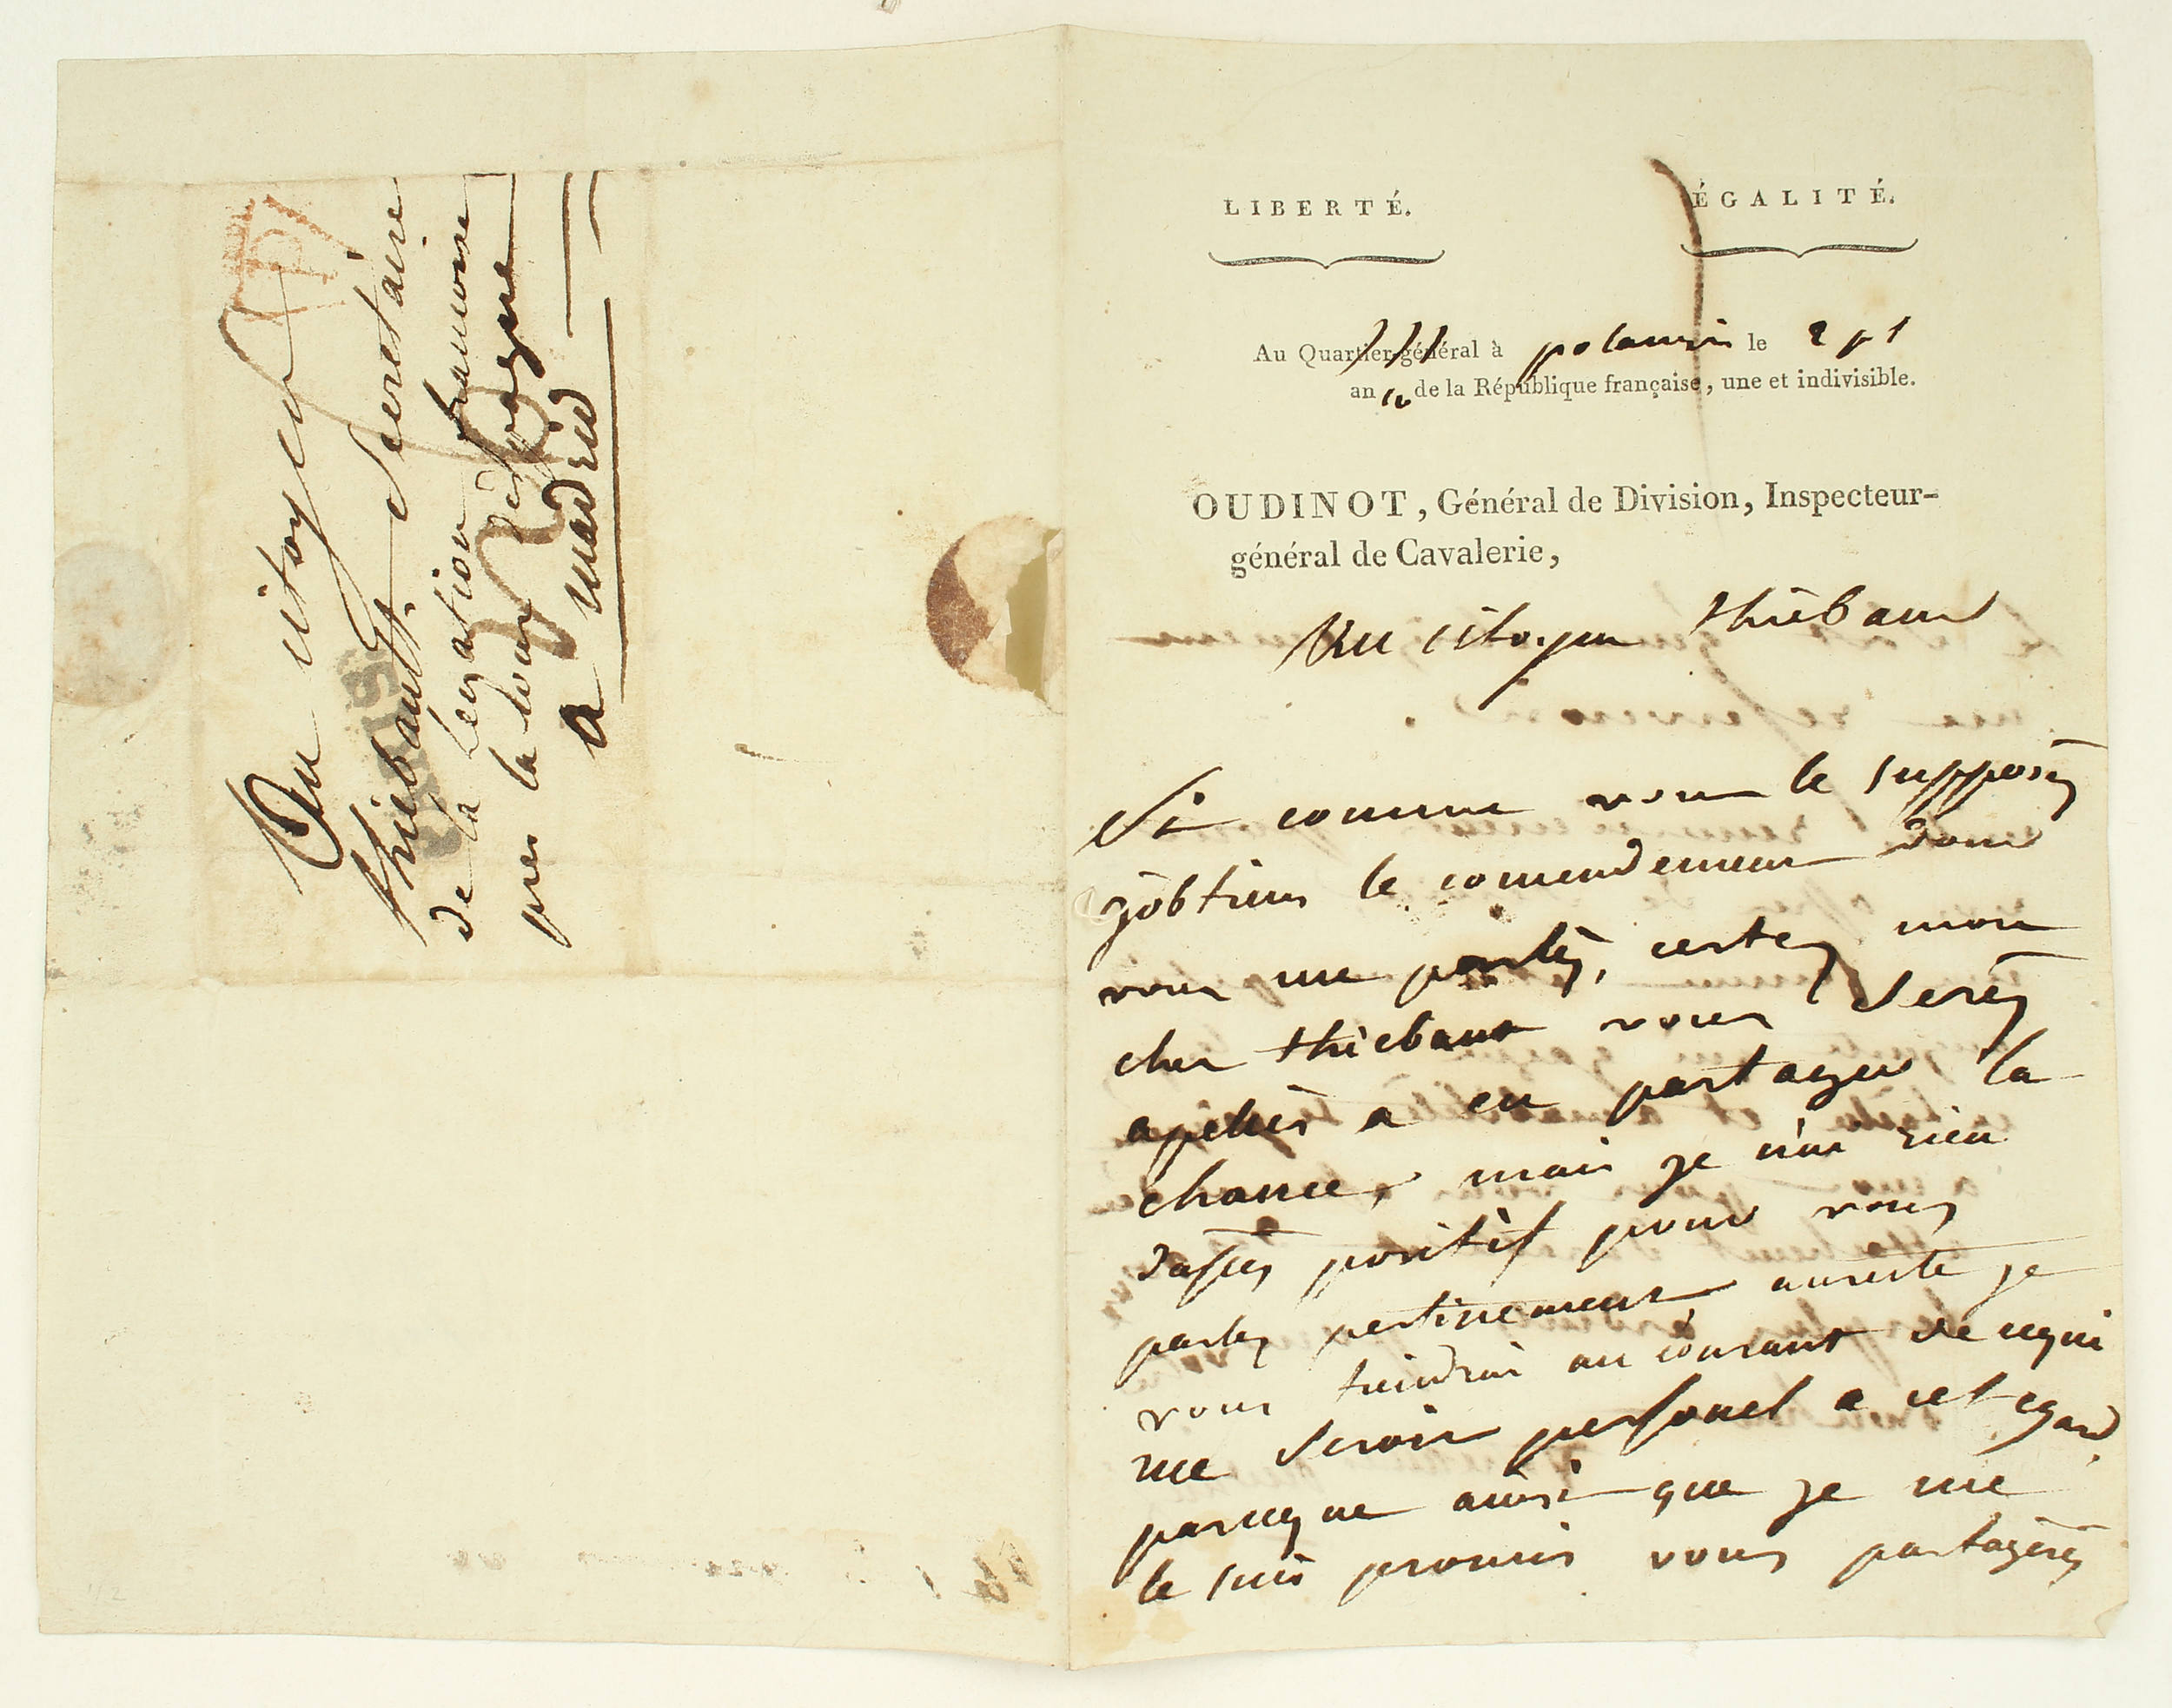 Au citoyen
thiebault Secretaire
de la Legation francoise
pres la cour d'espagne
a Madrid
P
LIBERTÉ. ÉGALITÉ.
Au Quartier-général à le
an de la République française, une et indivisible.
OUDINOT, Général de Division, Inspecteur-
général de Cavalerie,
Au citoyen thiebaud
Si comme vous le supposéz
j'obtiens le comendement dont
vous me parléz, certes mon
cher thiebaut vous Seréz
apellér a en partager la
chance, mais je n'ai rien
d'assez positif pour vous
parler pertinement, aureste je
vous tiendrai au courant de cequi
me Seroit personel a cet egard
parceque ainsi que je me
le suis promis vous partagéréz